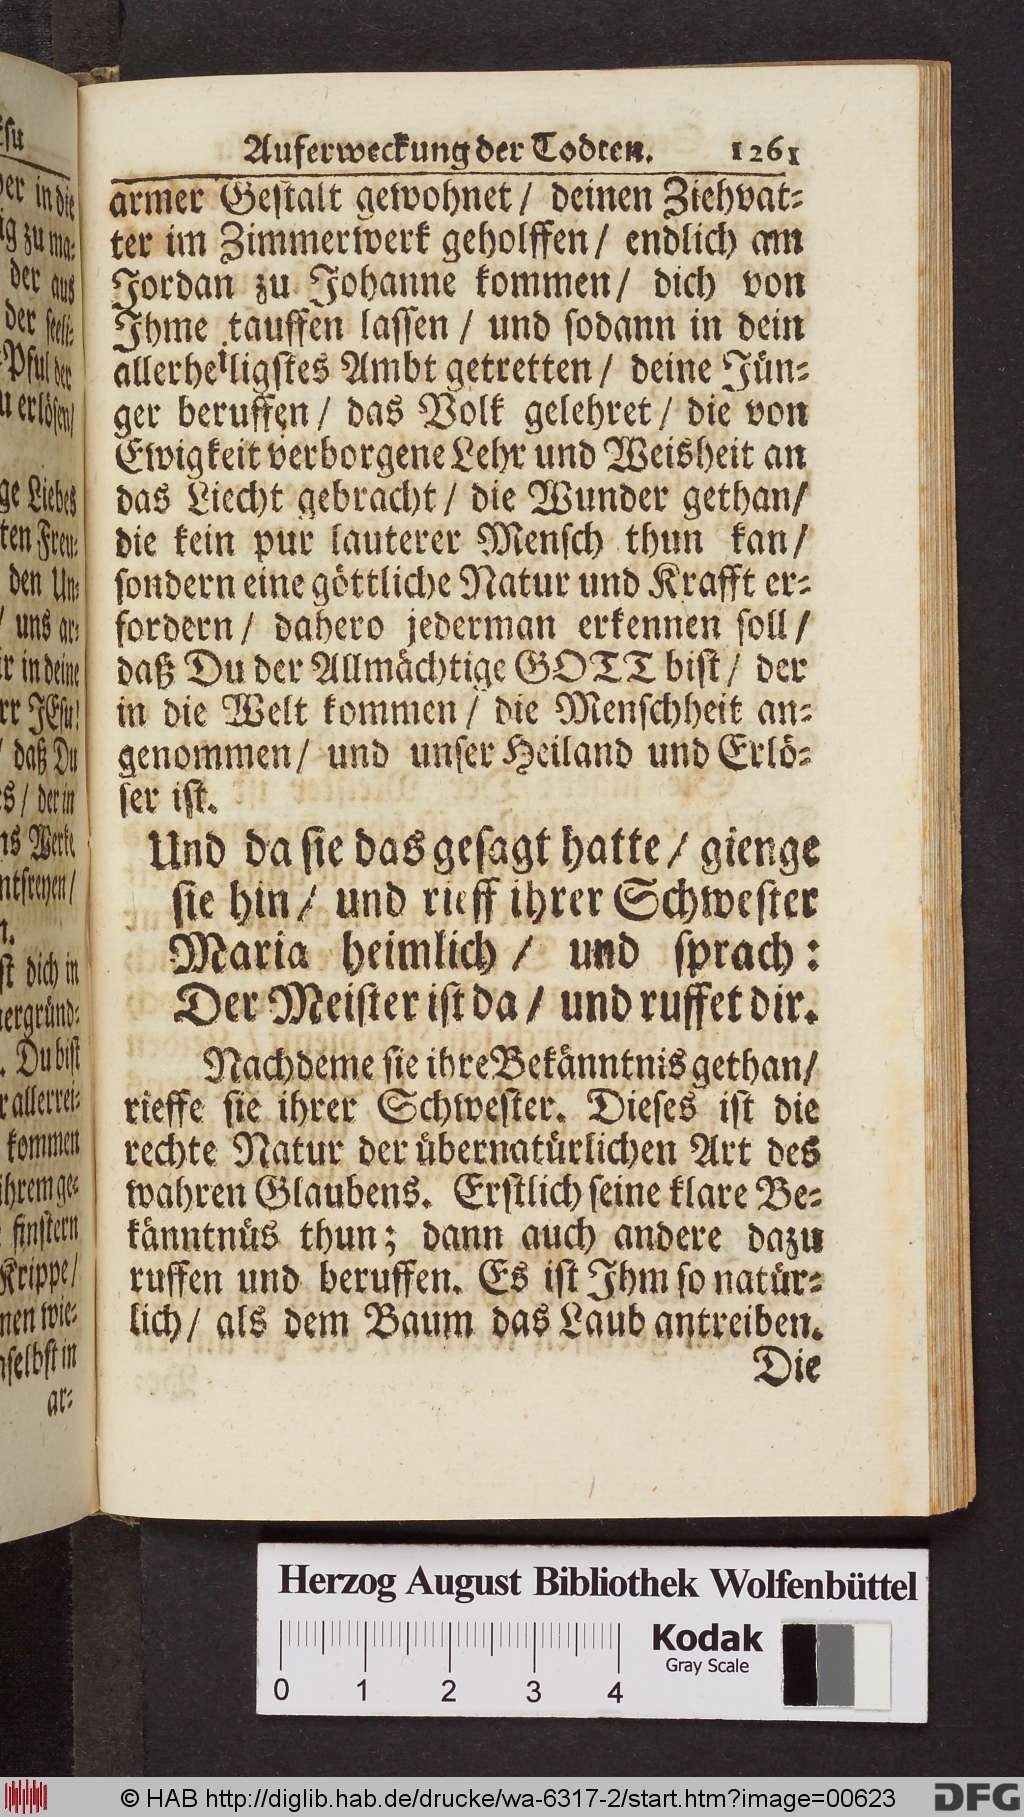 Auferweckung der Todten. 1261
armer Gestalt gewohnet / deinen Ziehvat-
ter im Zimmerwerk geholffen / endlich am
Jordan zu Johanne kommen / dich von
Ihme tauffen lassen / und sodann in dein
allerheiligstes Ambt getretten / deine Jün-
ger beruffen / das Volk gelehret / die von
Ewigkeit verborgene Lehr und Weisheit an
das Liecht gebracht / die Wunder gethan /
die kein pur lauterer Mensch thun kan /
sondern eine göttliche Natur und Krafft er-
fordern / dahero jederman erkennen soll /
daß Du der Allmächtige GOTT bist / der
in die Welt kommen / die Menschheit an-
genommen / und unser Heiland und Erlö-
ser ist.
Und da sie das gesagt hatte / gienge
sie hin / und rieff ihrer Schwester
Maria heimlich / und sprach:
Der Meister ist da / und ruffet dir.
Nachdeme sie ihre Bekänntnis gethan /
rieffe sie ihrer Schwester. Dieses ist die
rechte Natur der übernatürlichen Art des
wahren Glaubens. Erstlich seine klare Be-
känntnüs thun; dann auch andere dazu
ruffen und beruffen. Es ist Ihm so natür-
lich / als dem Baum das Laub antreiben.
Die
in die
zu ma-
der aus
der seeli-
Pful der
erlösen /
Liebes
ten Freu-
den Un-
/ uns ar-
in deine
JEsu!
/ daß Du
/ der in
Werke
/
dich in
. Du bist
kommen
ihrem ge-
finstern
Krippe /
wie-
in
ar-
Herzog August Bibliothek Wolfenbüttel
Kodak
Gray Scale
0 1 2 3 4
© HAB http://diglib.hab.de/drucke/wa-6317-2/start.htm?image=00623
DFG